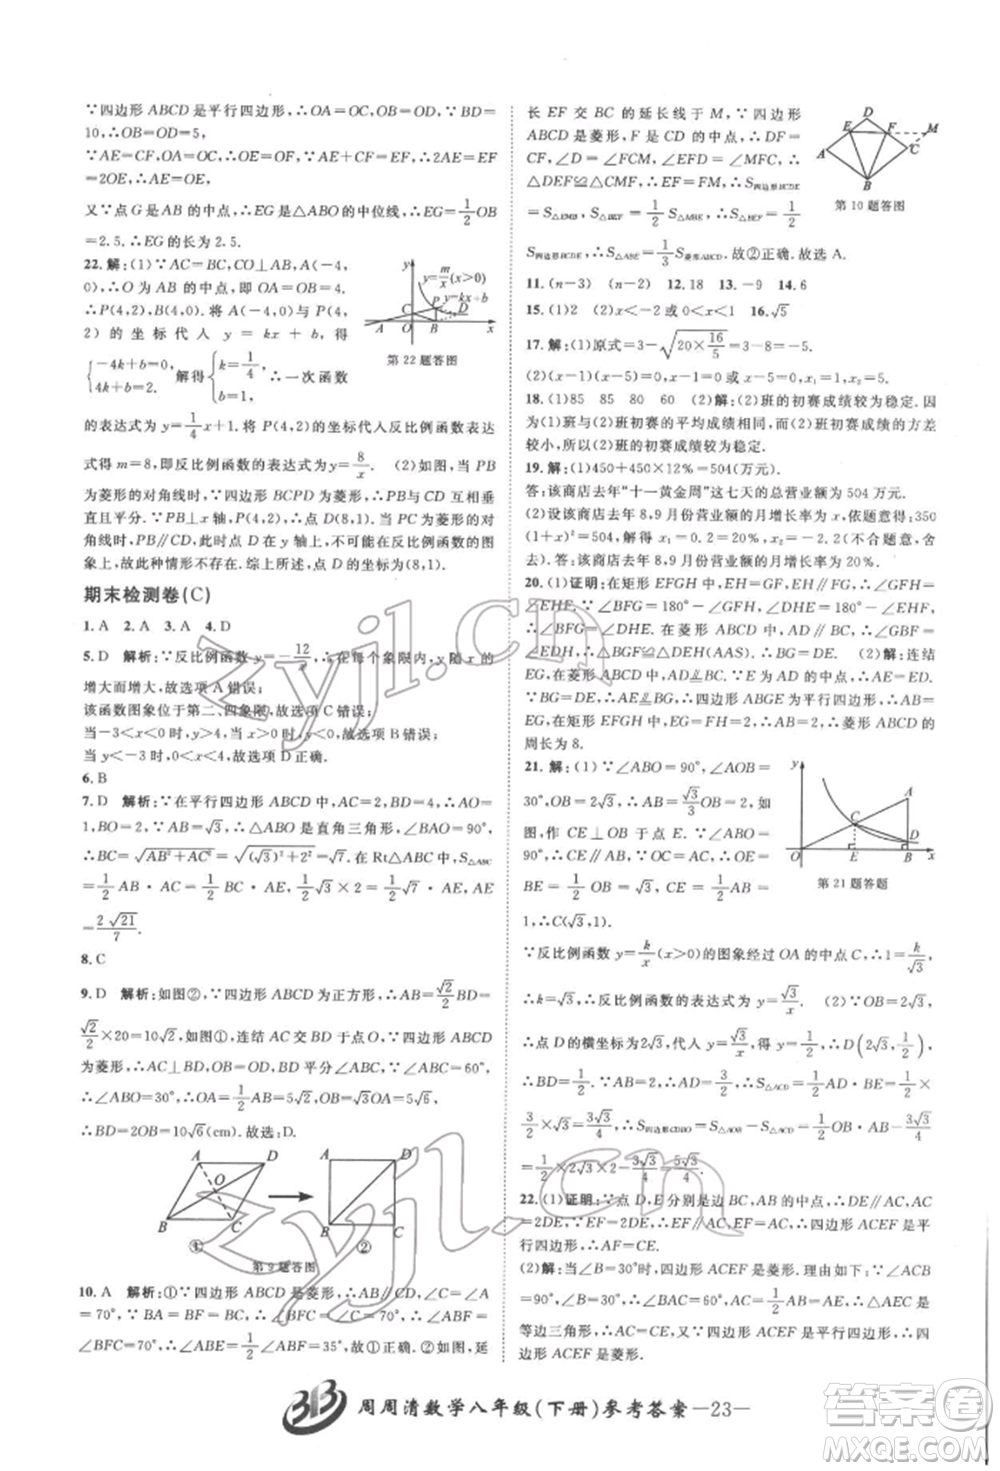 ∵四边形 ABCD 是平行四边形,∴OA=OC,OB=OD.∵BD=
10,∴OB=OD=5,
∵AE=CF,OA=OC,∴OE=OF.∵AE+CF=EF,∴2AE=EF
=2OE,∴AE=OE.
又∵点 G 是 AB 的中点,∴EG 是△ABO 的中位线,∴EG=1/2 OB
=2.5,∴EG 的长为 2.5.
22.解:(1)∵AC=BC,CO⊥AB,A(-4,
0),∴O 为 AB 的中点,即 OA=OB=4.
∴P(4,2),B(4,0).将 A(-4,0),P(4,
2) 的 坐 标 代 入 y = kx + b, 得
{-4k+b=0, 4k+b=2, 解得{k=1/4, b=1, ∴一次函数
的表达式为 y=1/4x+1.将 P(4,2)的坐标代入反比例函数表达
式得 m=8,即反比例函数的表达式为 y=8/x. (2)如图,当 PB
为菱形的对角线时,∵四边形 BCPD 为菱形,∴PB 与 CD 互相
垂直且平分.∵PB⊥x 轴,∴点 D(8,1).当 PC 为菱形的对
角线时,PB∥CD,此时点 D 在 y 轴上,不可能在反比例函数的图
象上,故此种情形不存在.综上所述,点 D(8,1).
y
y=m/x(x>0)
y=kx+b
P
D
C
A
O
B
x
第 22 题答图
期末检测卷(C)
1.A 2.A 3.A 4.D
5.D 解析:∵反比例函数 y=-12/x,∴在每个象限内,y 随 x 的
增大而增大,故选项 A 错误;
该函数图象位于第二、四象限,故选项 C 错误;
当-3<x<0 时,y>4,故选项 B 错误;
当 y<-3 时,x<4,故选项 D 正确.
6.B
7.D 解析:∵在平行四边形 ABCD 中,AC=2,BD=4,∴AO=
1,BO=2.∵AB=√3,∴△ABO 是直角三角形,∠BAO=90°,
∴BC=√(AB²+AC²)=√((√3)²+2²)=√7.在 Rt△ABC 中,S△ABC
=1/2 AB·AC=1/2 BC·AE,∴1/2×√3×2=1/2×√7·AE,∴AE
=2√21/7.
8.C
9.D 解析:如图②,∵四边形 ABCD 为正方形,∴AB=√2/2BD=
√2/2×20=10√2,如图①,连结 AC 交 BD 于点 O,∵四边形 ABCD
为菱形,∴AC⊥BD,OB=OD,BD 平分∠ABC.∵∠ABC=60°,
∴∠ABO=30°,∴OA=1/2AB=5√2,∴OB=√3OA=5√6,
∴BD=2OB=10√6(cm).故选:D.
A
D
O
B
C
①
A
D
B
C
②
第 9 题答图
10.A 解析:①∵四边形 ABCD 是菱形,∴AB∥CD,∴∠ABF
=∠C=70°,∵BA=BF=BC,∴∠BFC=∠C=70°,
∴∠FBC=70°,∴∠ABE=1/2∠ABF=35°,故①正确;②如图,延
长 EF 交 BC 的延长线于 M,∵四边形
ABCD 是菱形,F 是 CD 的中点,∴DF=
CF,∠D=∠FCM,∠EFD=∠MFC,
∴△DEF≌△CMF,∴EF=FM,∴S四边形BCDE
=S△EMB,S△BEF=1/2S△MBE,∴S△BEF=1/2
S四边形BCDE,∴S△BEF=1/3S菱形ABCD,故②正确.故选 A.
D
E
F
M
A
C
B
第 10 题答图
11.(n-3) (n-2) 12.18 13.-9 14.6
15.(1)2 (2)x<-2 或 0<x<1 16.√5
17.解:(1)原式=3-√(20×16/5)=3-8=-5.
(2)(x-1)(x-1-2)=0,∴x-1=0 或 x-3=0,∴x₁=1,x₂=3.
18.(1)85 85 80 60 (2)解:(2)班的初赛成绩较为稳定.因
为(1)班与(2)班初赛的平均成绩相同,而(2)班初赛成绩的方差
较小,所以(2)班的初赛成绩较为稳定.
19.解:(1)450+450×12%=504(万元).
答:该商店去年“十一黄金周”这七天的总营业额为 504 万元.
(2)设该商店去年 8,9 月份营业额的月增长率为 x,依题意,得:350
(1+x)²=504.解得:x₁=0.2,x₂=-2.2(不合题意,舍去).
答:该商店去年 8,9 月份营业额的月增长率为 20%.
20.(1)证明:∵在矩形 EFGH 中,EH=FG,EH∥FG,∴∠GFH=
∠EHF.∵∠BFG=180°-∠GFH,∠DHE=180°-∠EHF,
∴∠BFG=∠DHE.∵在菱形 ABCD 中,AD∥BC,∴∠GBF=
∠EDH,∴△BGF≌△DEH(AAS),∴BG=DE. (2)解:连结
EG,在菱形 ABCD 中,AD⫽BC.∵E 为 AD 的中点,∴AE=ED,
∵BG=DE,∴AE⫽BG,∴四边形 ABGE 为平行四边形,∴AB=
EG.在矩形 EFGH 中,EG=FH=2,∴AB=2,∴菱形 ABCD 的
周长为 8.
21.解:(1)∵∠ABO=90°,∠AOB=
30°,OB=2√3,∴AB=√3/3OB=2.如
图,作 CE⊥OB 于点 E.∵∠ABO=
90°,∴CE∥AB.∵OC=AC,∴OE=
BE=1/2OB=√3,CE=1/2AB=
1,∴C(√3,1).
y
A
C
D
O
E
B
x
第 21 题答题
∵反比例函数 y=k/x(x>0)的图象经过 OA 的中点 C,∴1=k/√3,
∴k=√3,∴反比例函数的表达式为 y=√3/x. (2)∵OB=2√3,
∴点 D 的横坐标为 2√3,代入 y=√3/x,得 y=1/2,∴D(2√3,1/2),
∴BD=1/2,∵AB=2,∴AD=3/2,∴S△ACD=1/2AD·BE=1/2×
3/2×√3=3√3/4,∴S四边形CDBO=S△AOB-S△ACD=1/2OB·AB-3√3/4
=1/2×2√3×2-3√3/4=5√3/4.
22.(1)证明:∵点 D,E 分别是边 BC,AB 的中点,∴DE∥AC,AC
=2DE,∵EF=2DE,∴EF∥AC,EF=AC,∴四边形 ACEF 是平
行四边形,∴AF=CE.
(2)解:当∠B=30°时,四边形 ACEF 为菱形.理由如下:∵∠ACB
=90°,∠B=30°,∴∠BAC=60°,AC=1/2AB=AE,∴△AEC 是
等边三角形,∴AC=CE.又∵四边形 ACEF 是平行四边形,∴四
边形 ACEF 是菱形.
周周清数学八年级(下册)参考答案—23—
zyjl.cn
zyjl.cn
答案圈
MXQE.COM